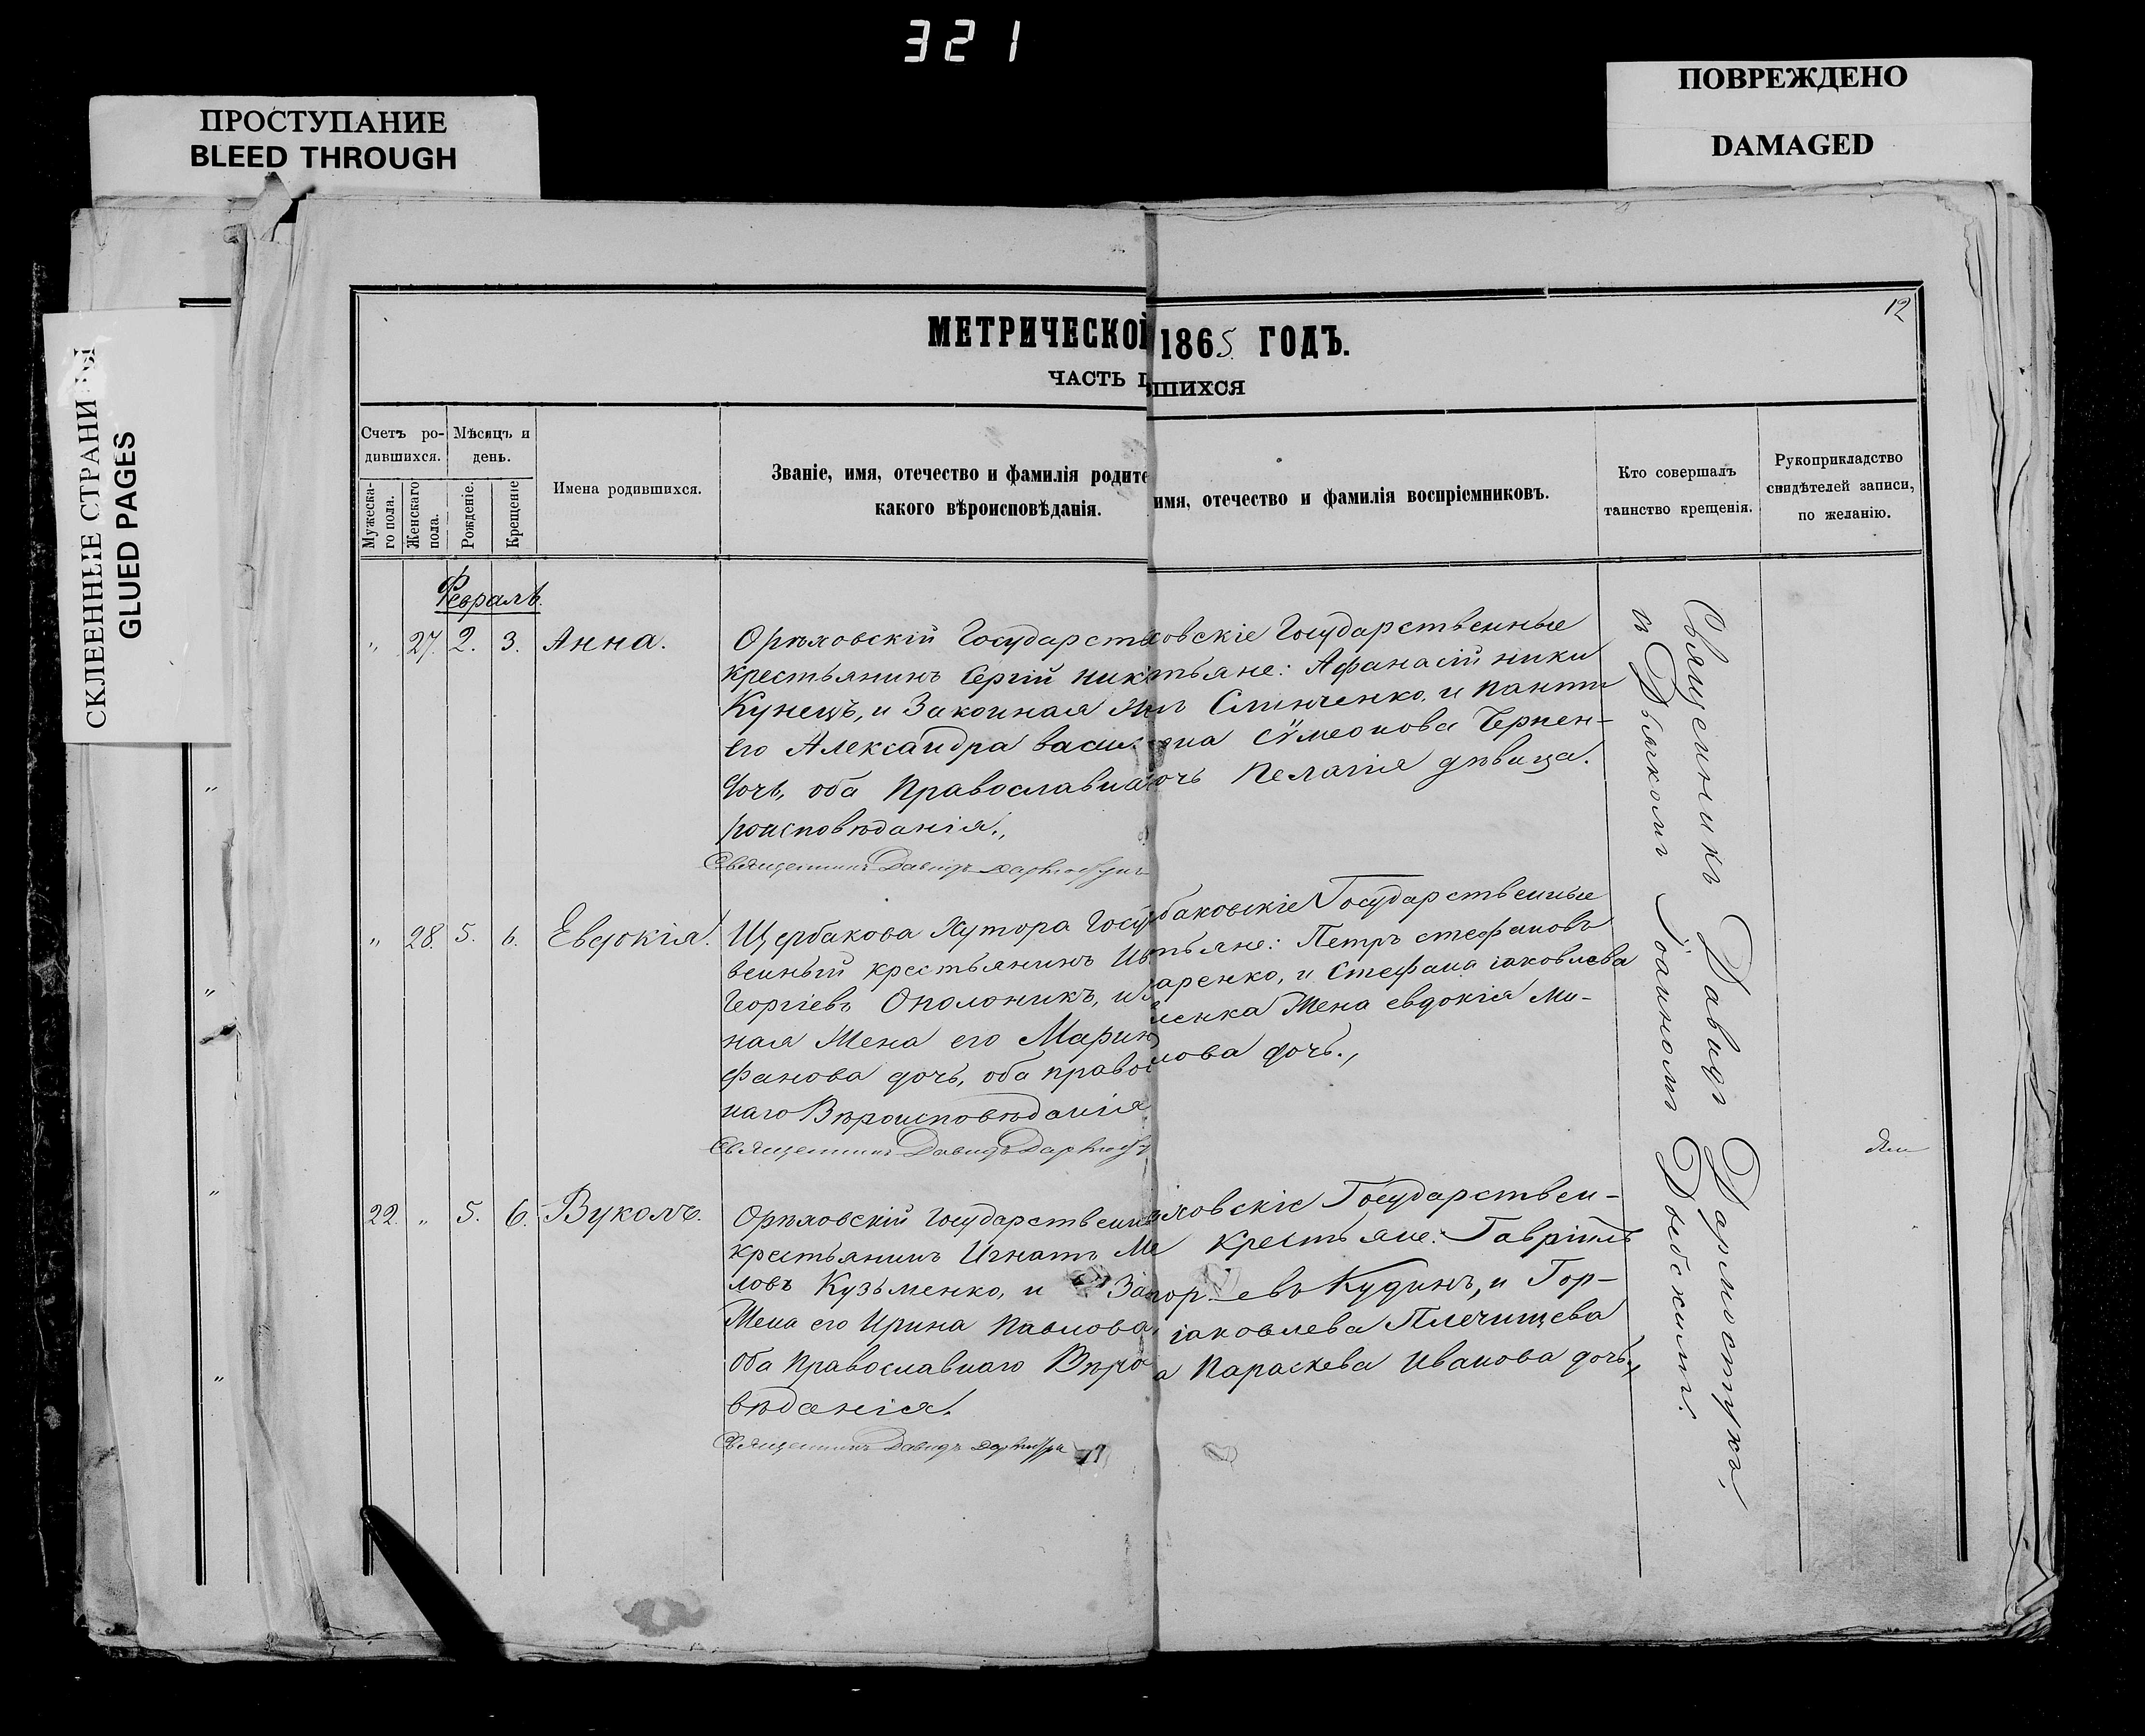 321
ПРОСТУПАНИЕ
BLEED THROUGH
ПОВРЕЖДЕНО
DAMAGED
СКЛЕЕННЫЕ СТРАНИ
GLUED PAGES
12
МЕТРИЧЕСКОЙ
1865 ГОДЪ.
ЧАСТЬ
ВШИХСЯ
Счетъ ро-
дившихся.
Мужеска-
го пола.
Женскаго
пола.
Мѣсяцъ и
день.
Рожденіе.
Крещеніе
Имена родившихся.
Званіе, имя, отечество и фамилія родите
какого вѣроисповѣданія.
имя, отечество и фамилія воспріемниковъ.
Кто совершалъ
таинство крещенія.
Рукоприкладство
свидѣтелей записи,
по желанію.
Февраль.
„ 27. 2. 3. Анна.
Орѣховскій Государств
крестьянинъ Сергій Ник
Кунецъ, и Законная
его Александра Васил
дочь, оба Православна
роисповѣданія.,
Священникъ Давидъ
ховскіе Государственные
тьяне: Афанасій Ники
Слинченко, и Панти
Сѵмеонова Чернен-
очь Пелагія дѣвица.
„ 28. 5. 6. Евдокія.
Щербакова Хутора Госу
венный крестьянинъ Ив
Георгіевъ Ополоникъ, и З
ная Жена его Марин
фанова дочь, оба правос
наго Вѣроисповѣданія
Священникъ Давидъ
баковскіе Государственные
тьяне: Петръ Стефановъ
аренко, и Стефана Іаковлева
ленка Жена Евдокія Ми-
лова дочь.,
22. „ 5. 6. Вуколъ.
Орѣховскій Государственн
крестьянинъ Игнатъ Ме
ловъ Кузьменко, и За
Жена его Ирина Павлова
оба Православнаго Вѣро
вѣданія.
Священникъ Давидъ
ховскіе Государствен-
крестьяне: Гавріилъ
евъ Кудинъ, и Гор-
Іаковлева Плечищева
а Параскева Иванова дочь,
Священникъ Давидъ Дарностукъ,
съ Дьячкомъ Іоанномъ